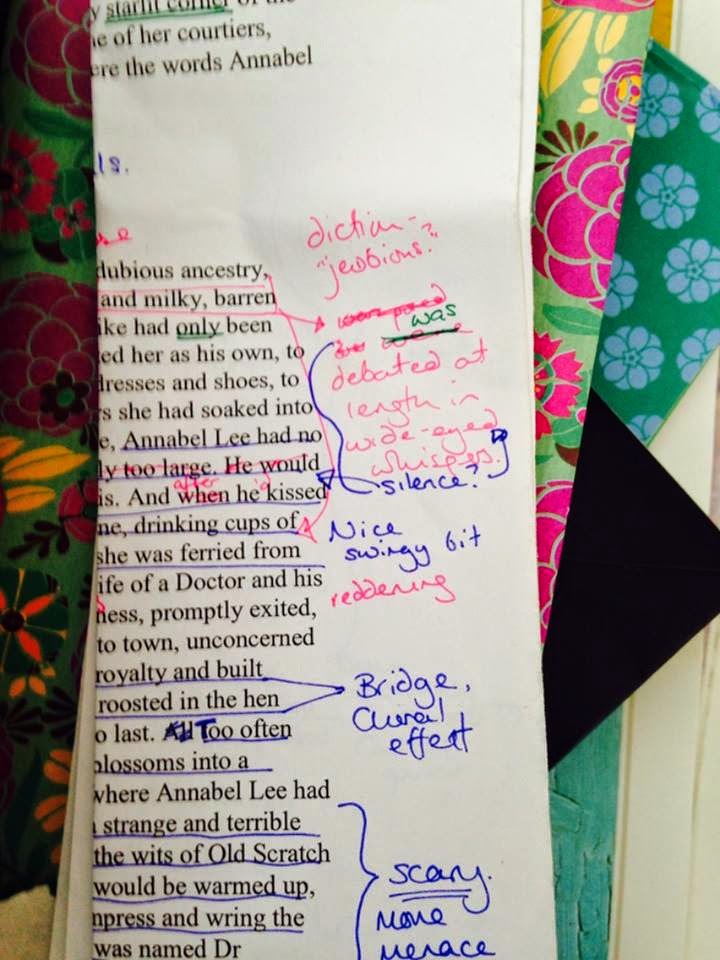 y starlit corner of the
e of her courtiers,
ere the words Annabel
ls.
diction -
"jewbious"?
dubious ancestry,
and milky, barren
ike had only been
was
ed her as his own, to
dresses and shoes, to
debated at
length in
wide-eyed
whispers.
s she had soaked into
e, Annabel Lee had no
ly too large. He would
silence?
after
is. And when he kissed
ne, drinking cups of
Nice
swingy bit
she was ferried from
ife of a Doctor and his
reddening
ness, promptly exited,
to town, unconcerned
royalty and built
roosted in the hen
Bridge,
Choral
effect
o last. All Too often
blossoms into a
where Annabel Lee had
strange and terrible
the wits of Old Scratch
would be warmed up,
scary.
More
menace
npress and wring the
was named Dr